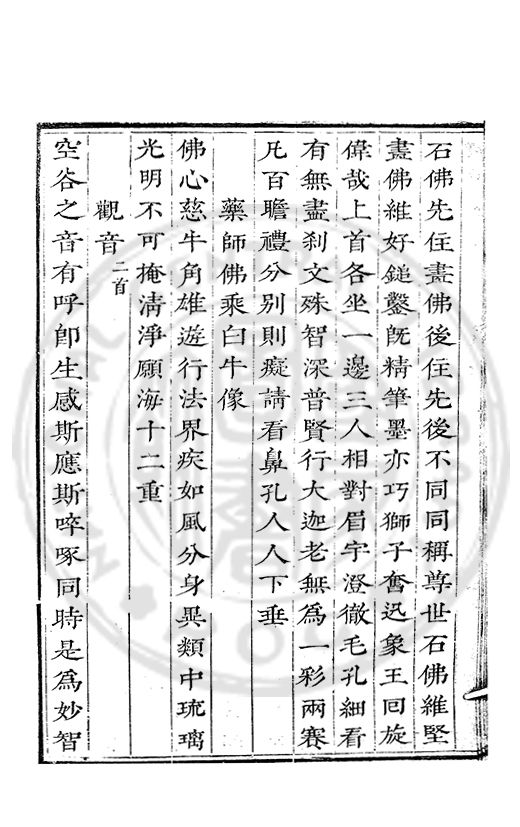 石佛先住畫佛後住先後不同同稱尊世石佛維堅
畫佛維好鎚鑿既精筆墨亦巧獅子奮迅象王回旋
偉哉上首各坐一邊三人相對眉宇澄徹毛孔細看
有無盡刹文殊智深普賢行大迦老無爲一彩兩賽
凡百瞻禮分別則癡請看鼻孔人人下垂
藥師佛乘白牛像
佛心慈牛角雄遊行法界疾如風分身異類中琉璃
光明不可掩淸淨願海十二重
觀音二首
空谷之音有呼卽生感斯應斯啐啄同時是爲妙智